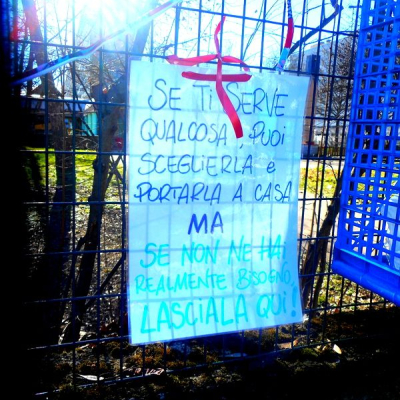 SE TI SERVE
QUALCOSA, PUOI
SCEGLIERLA e
PORTARLA A CASA
MA
SE NON NE HAI
REALMENTE BISOGNO,
LASCIALA QUI!